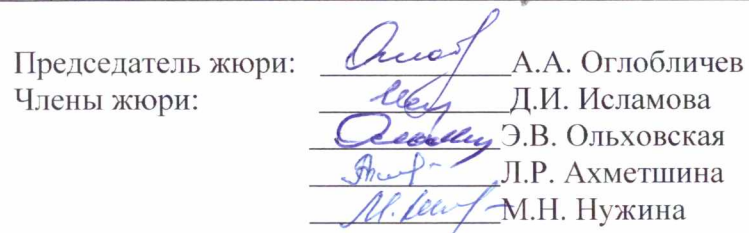 Председатель жюри: А.А. Оглобличев
Члены жюри: Д.И. Исламова
Э.В. Ольховская
Л.Р. Ахметшина
М.Н. Нужина